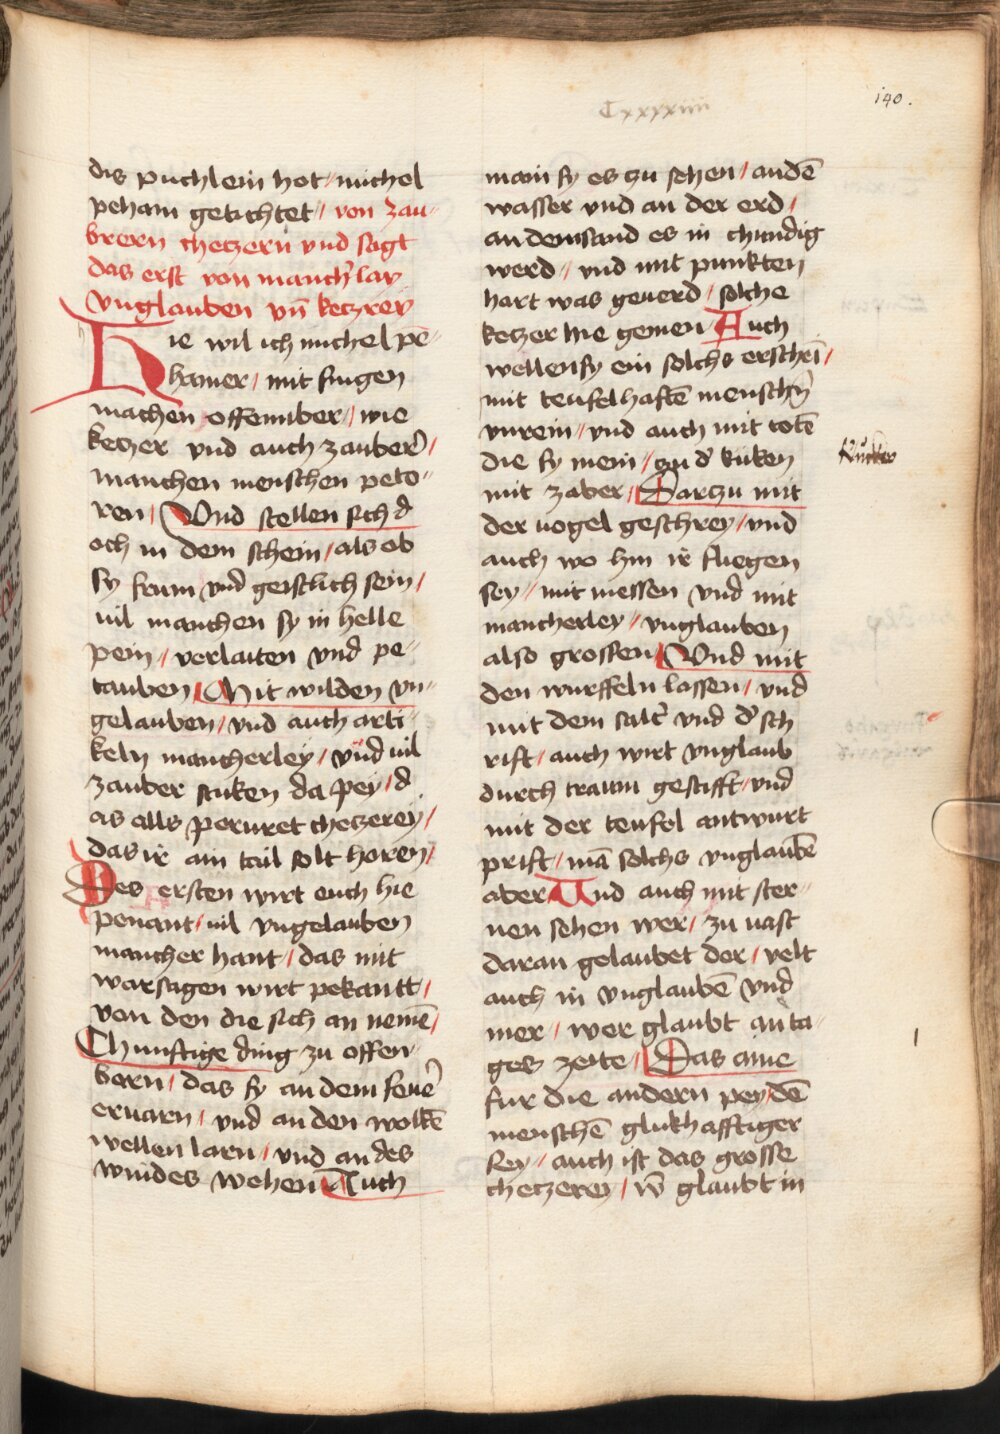 Cxxxxiiii
190.
dis puchlein hot / michel
peham getichtet / von zau-
brern chetzern vnd sagt
das erst von manch'lay
vnglauben vn̄ ketzrey
Hie wil ich michel pe-
hamer / mit singen
machen offennber / wie
ketzer vnd auch zauber' /
manchen menschen peto-
ren / Vnd stellen sich d
och in dem schein / als ob
sy frum vnd geistlich sein /
uil manchen sy in helle
pein / verlaiten vnd pe-
tauben / Mit wilden vn-
gelauben / vnd auch arti-
keln mancherley / vnd uil
zauber stuken da pey / d
as alls peruret chetzerey /
das ir ain tail solt horen /
Des ersten wirt euch hie
penant / uil vngelauben
mancher hant / das mit
warsagen wirt pekantt /
von den die sich an nemē /
Chunftige ding zu offen-
barn / das sy an dem feue'
eruarn / vnd an den wolkē
wellen larn / vnd an des
windes wehen / Auch
main sy es zu sehen / an dē
wasser vnd an der erd /
an dem sand es in chundig
werd / vnd mit punkten
hart was geuerd / solche
ketzer hie gemen / Auch
wellen sy ein solchs erschei̅ /
mit teufelhaftē mensch'n
vnrein / vnd auch mit totē
die sy mein / zu d' kuken
Rucken
mit zaber / Darczu mit
der uogel geschrey / vnd
auch wo hin ir fliegen
sey / mit messen vnd mit
mancherley / vnglauben
also grossen / Vnd mit
den wurffeln lassen / vnd
mit dem salt' vnd d' sch
rift / auch wirt vnglaub
durch traum gestifft / vnd
mit der teufel antwurt
prift / mā solchs vnglaubē
aber / Und auch mit ster-
nen sehen wer / zu uast
daran gelaubet der / velt
auch in vnglaubē vnd
mer / wer glaubt an ta-
ges zeite / Das aine
fur die andern pey dē
menschē glukhafftiger
sey / auch ist das grosse
chetzerey / w' glaubt in